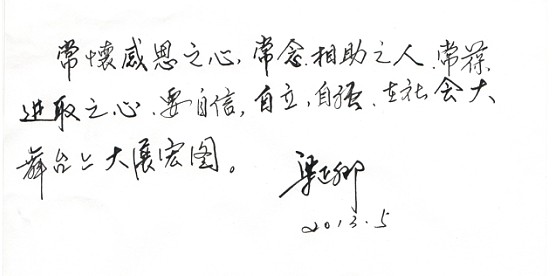 常怀感恩之心,常念相助之人.常葆
进取之心.要自信,自立,自强.在社会大
舞台上大展宏图。
梁正卿
2013.5